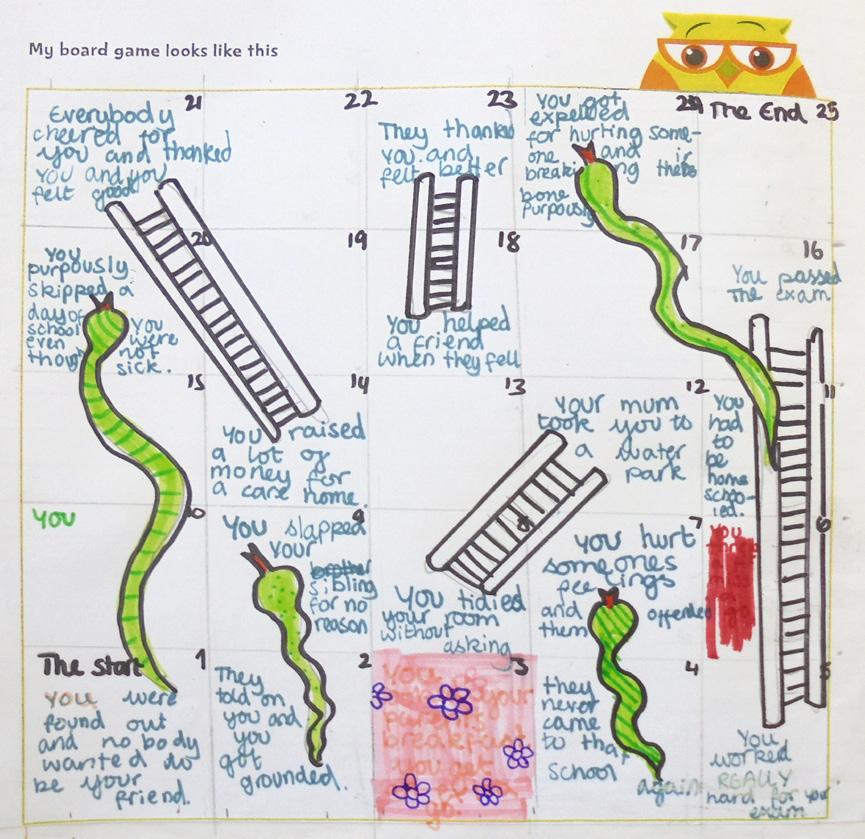 My board game looks like this
21
22
23
24
The End 25
Everybody
cheered for
you and thanked
you and you
felt good
They thanked
you and
felt better
You got
expelled
for hurting some-
one and
breaking
bone
purpously
20
19
18
17
16
You
purpously
skipped a
day of
school
even
though
you
were
not
sick.
You helped
a friend
when they fell
You passed
The exam
15
14
13
12
11
You raised
a lot of
money for
a care home
your mum
took you to
a water
park
You
had
to
be
home
schoo-
led.
10
9
8
7
6
You
You slapped
your
sibling
for no
reason
You tidied
your room
without asking
you hurt
someones
feelings
and offended
them
The start
1
2
3
4
5
you were
found out
and no body
wanted to
be your
friend.
They
told on
you and
you
got
grounded.
they
never
came
to that
school
again
You
worked
REALLY
hard for your
exam